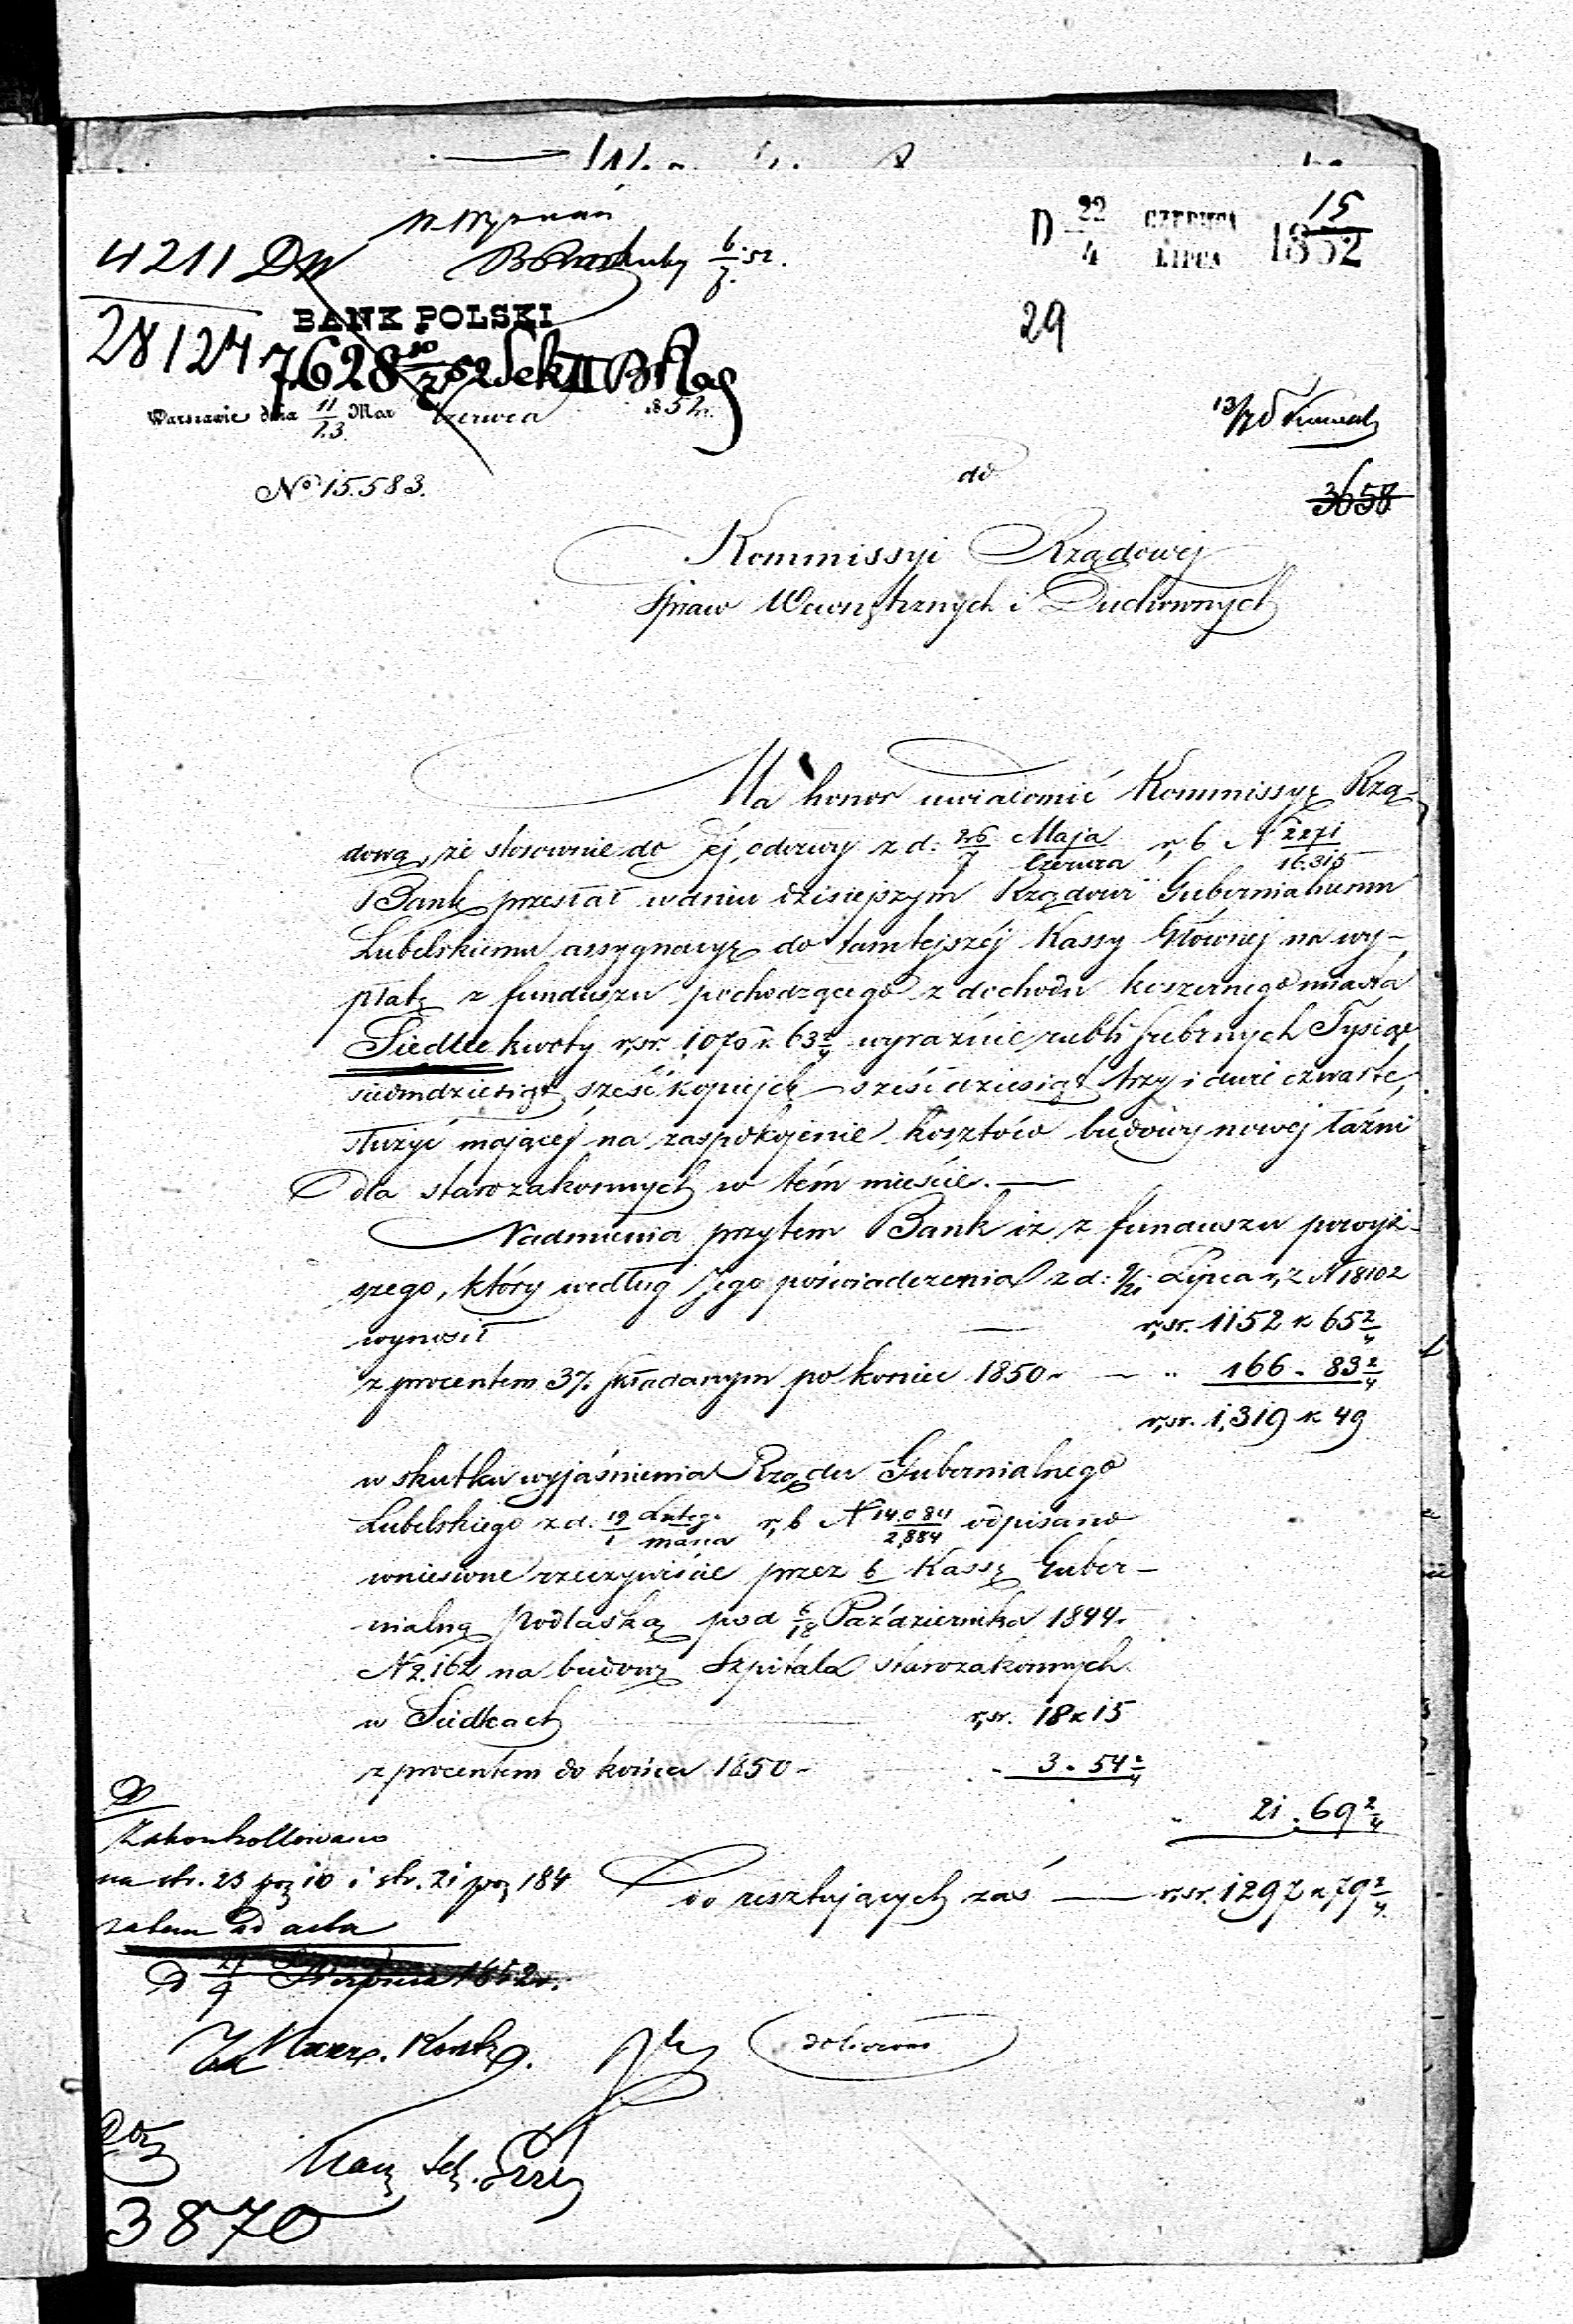 W. Wyznań
4211 DW
6/7 52.
D 22/4 CZERWCA/LIPCA 1852
15
28127
BANK POLSKI
29
7628 10/7 52 Sek II
Warszawie dnia 11/23 Czerwca 1852 r.
13/7
No 15.583.
do
3658
Kommissyi Rządowej
Spraw Wewnętrznych i Duchownych
Ma honor uwiadomić Kommissyę Rzą-
dową, że stosownie do Jéj odezwy z d: 26/7 Maja/Czerwca r, b N 2271/16.315
Bank przesłał w dniu dzisiejszym Rządowi Gubernialnemu
Lubelskiemu assygnacyę do tamtejszéj Kassy Głównej na wy-
płatę z funduszu pochodzącego z dochodu koszernego miasta
Siedlec kwoty r,sr. 1070 k 63 2/4 wyraźnie rubli srebrnych Tysiąc
siedmdziesiąt sześć kopiejek sześćdziesiąt trzy i dwie czwarte,
służyć mającéj na zaspokojenie kosztów budowy nowej łaźni
dla starozakonnych w tém mieście. —
Nadmienia przytem Bank iż z funduszu powyż-
szego, który według Jego poświadczenia z d: 9/21 Lipca r, z N 18102
wynosił — r,sr. 1152 k 65 2/4
z procentem 3%. składanym po koniec 1850 — " 166 - 83 2/4
r,sr. 1,319 k 49
w skutku wyjaśnienia Rządu Gubernialnego
Lubelskiego z d. 19/1 Lutego/marca r, b N 14.084/2,884 odpisano
wniesione rzeczywiście przez b Kassę Guber-
nialną Podlaską pod 6/18 Października 1844.
N 2.162 na budowę Szpitala starozakonnych
w Siedlcach r,sr. 18 k 15
z procentem do końca 1850 - 3 - 54 2/4
21 . 69 2/4
Zakontrollowano
na str. 23 poz 10 i str. 21 poz 184
do resztujących zaś — r,sr. 1297 k 79 2/4
zatem ad acta
D 4 Sierpnia 1852 r.
Za Nacz. Kontr.
dolicono
Nacz Sek.
3870